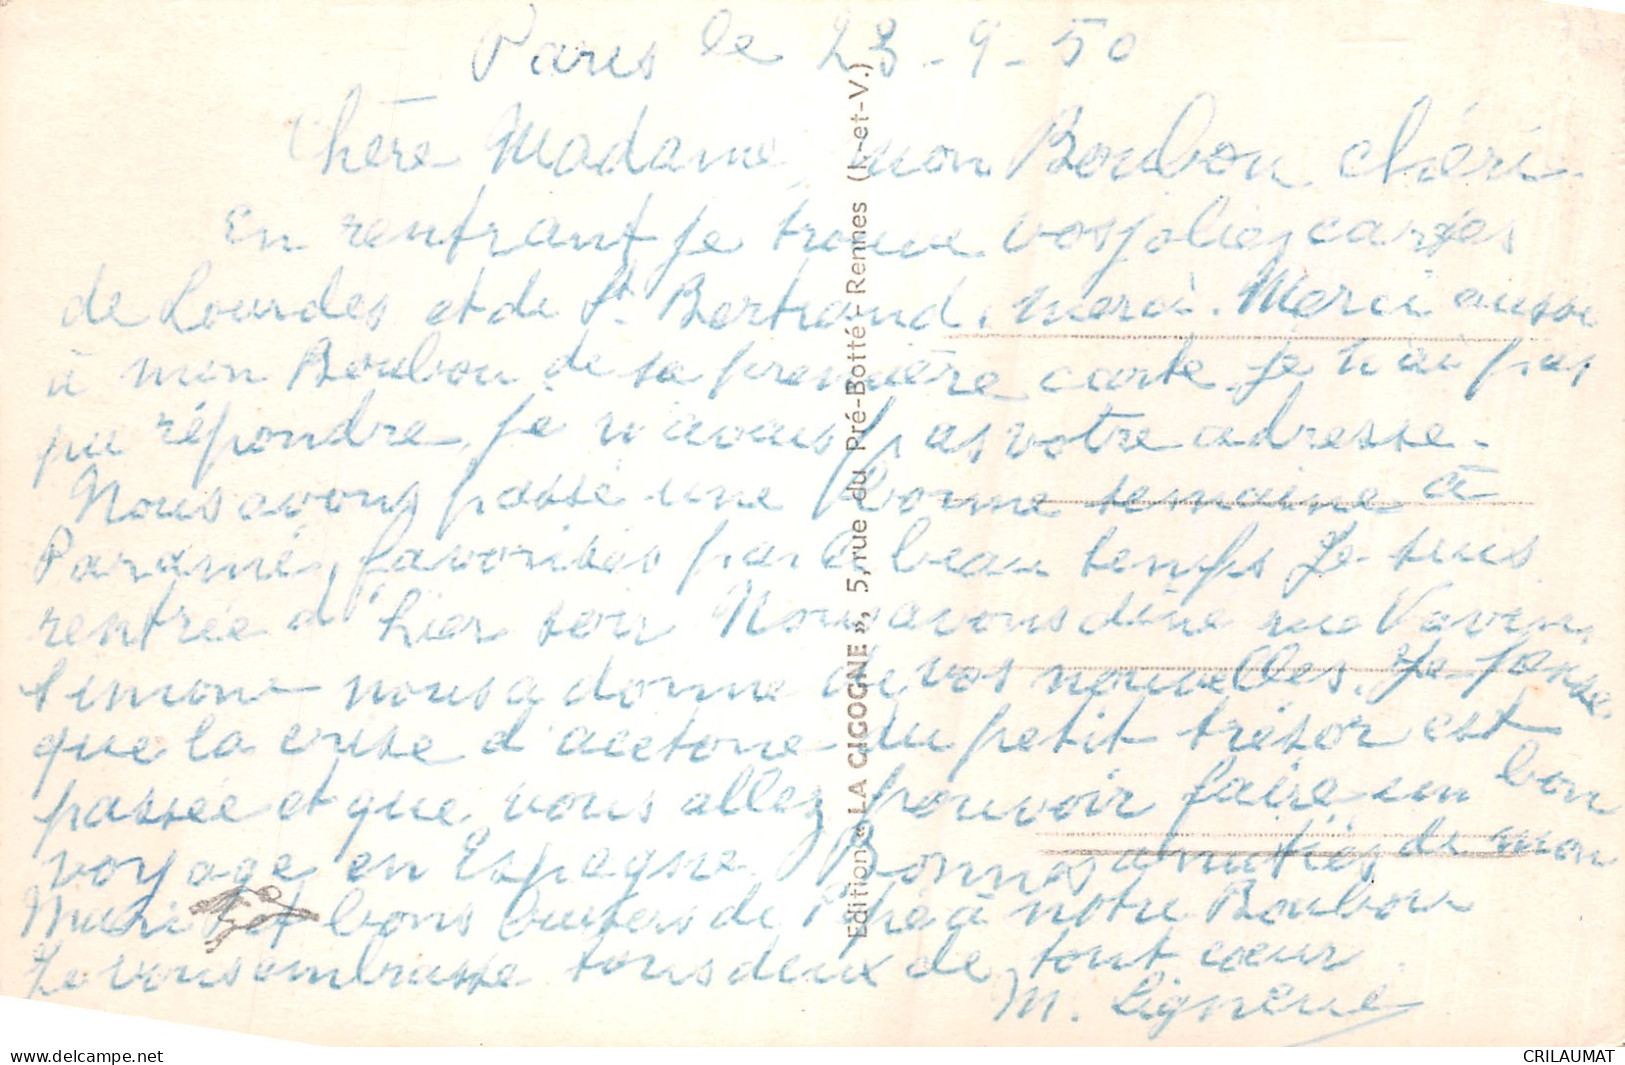 Paris le 23-9-50
Chère Madame, mon Boubou chéri
En rentrant je trouve vos jolies cartes
de Lourdes et de St. Bertrand, merci. Merci aussi
à mon Boubou de sa première carte. Je n'ai pas
pu répondre, je n'avais pas votre adresse.
Nous avons passé une bonne semaine à
Paramé, favorisés par le beau temps. Je suis
rentrée d'hier soir. Nous avons dîné rue Vavin,
Simone nous a donné de vos nouvelles. Je pense
que la crise d'acétone du petit trésor est
passée et que vous allez pouvoir faire un bon
voyage en Espagne. Bonnes amitiés de mon
Mari et bons baisers de Pépé à notre Boubou
Je vous embrasse tous deux de tout cœur.
M.
Edition « LA CIGOGNE », 5, rue du Pré-Botté - Rennes (I.-et-V.)
delcampe.net
CRILAUMAT